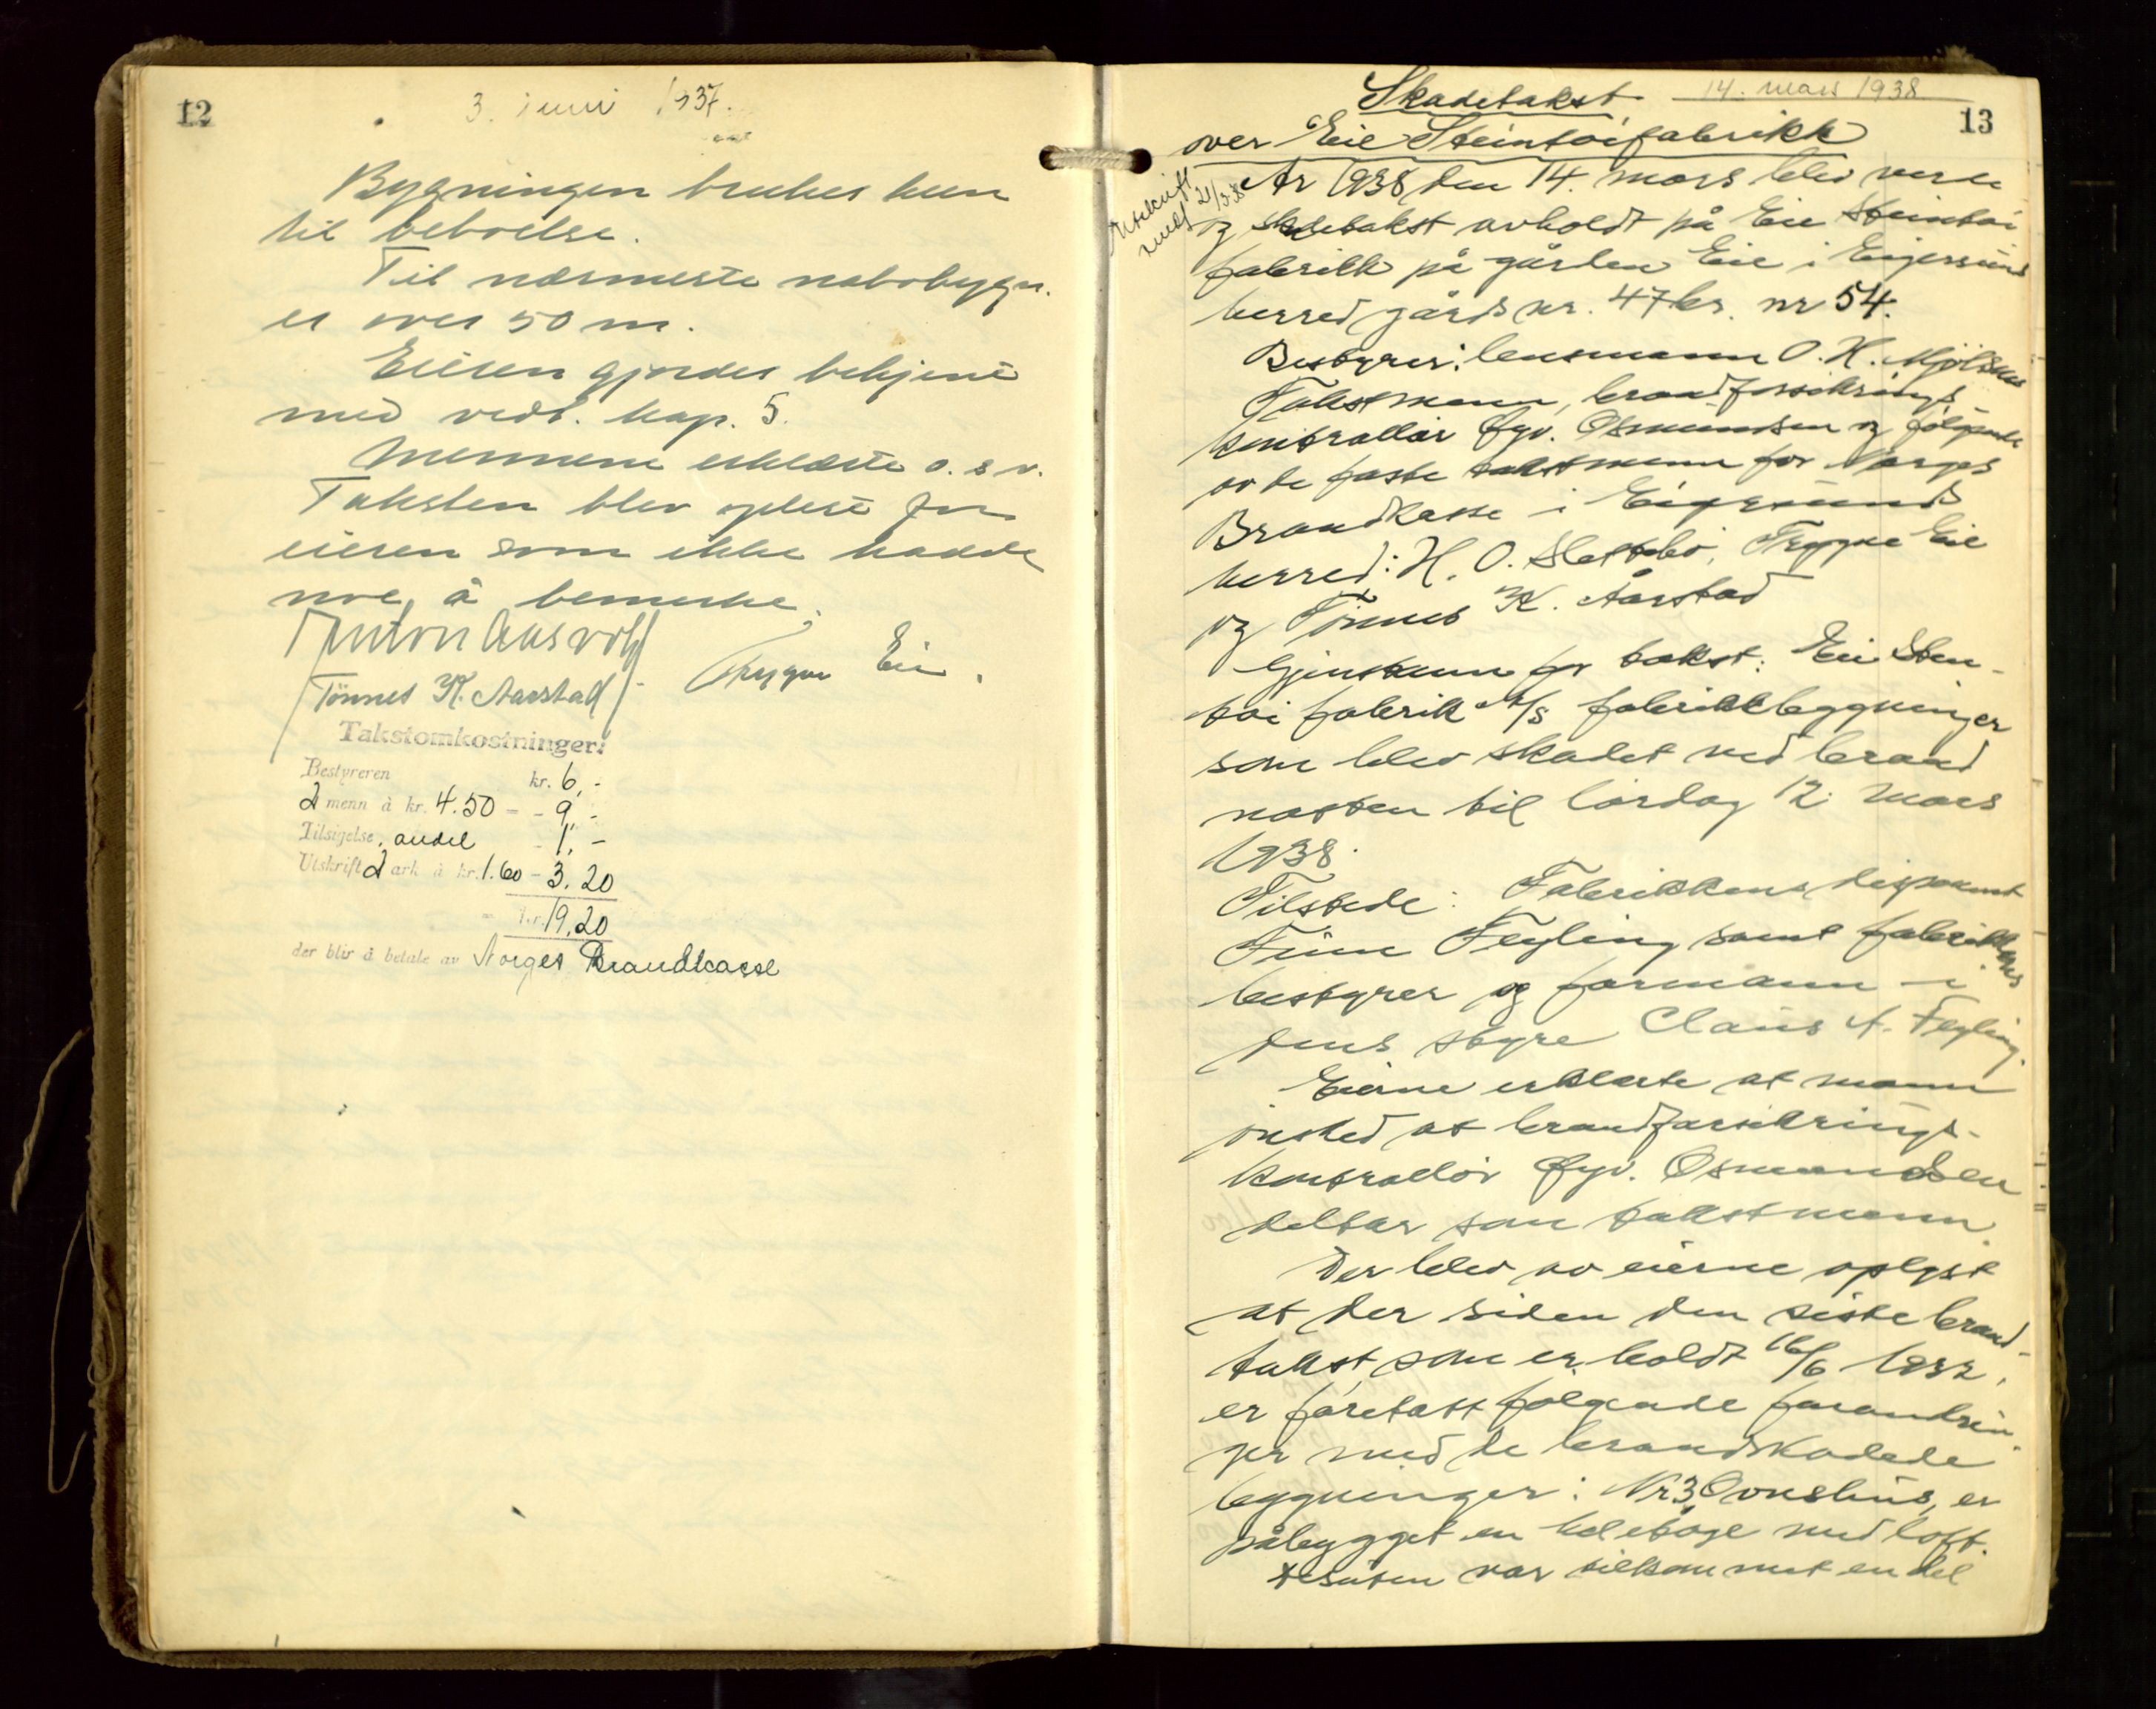 12
3. juni 1937.
Bygningen brukes kun
til beboelse.
Til nærmeste nabobygn.
er over 50 m.
Eieren gjordes bekjent
med vedt. kap. 5.
Mennene erklærte o. s. v.
Taksten blev oplest for
eieren som ikke hadde
noe å bemerke.
Anton Aasvoll
Tönnes K. Aarstad Trygve Eie.
Takstomkostninger:
Bestyreren kr. 6,-
2 menn à kr. 4.50 - - 9,-
Tilsigelse, andel - 1,-
Utskrift 2 ark à kr. 1.60 - 3,20
kr. 19,20
der blir å betale av Norges Brandkasse
14. mars 1938
13
Skadetakst
over Eie Steintøifabrikk
Utskrift
sendt 21/3 38
År 1938 den 14. mars blev verdi
og skadetakst avholdt på Eie Steintøi
fabrikk på gården Eie i Eigersund
herred gårds nr. 47 br. nr 54.
Bestyrer: lensmann O. H. Mjølsnes
Takstmenn, brandforsikrings
kontrollør Gyv. Osmundsen og følgende
av de faste takstmenn for Norges
Brandkasse i Eigersund
herred: H. O. Slettebø, Trygve Eie
og Tönnes K. Aarstad
Gjenstann for takst: Eie Sten-
tøi fabrik A/S fabrikkbygninger
som blev skadet ved brand
natten til lørdag 12. mars
1938.
Tilstede: Fabrikkens disponent
Finn Feyling samt fabrikkens
bestyrer og formann i
dens styre Claus A. Feyling.
Eierne erklærte at mann
ønsked at brandforsikrings-
kontrollør Gyv. Osmundsen
deltar som takstmann.
Der blev av eierne oplyst
at der siden den siste brand-
takst, som er holdt 16/6 1932,
er foretatt følgende forandrin-
ger med de brandskadede
bygninger: Nr 3 Ovnshus, er
påbygget en heletage med loft.
desuten var tilkommet en del